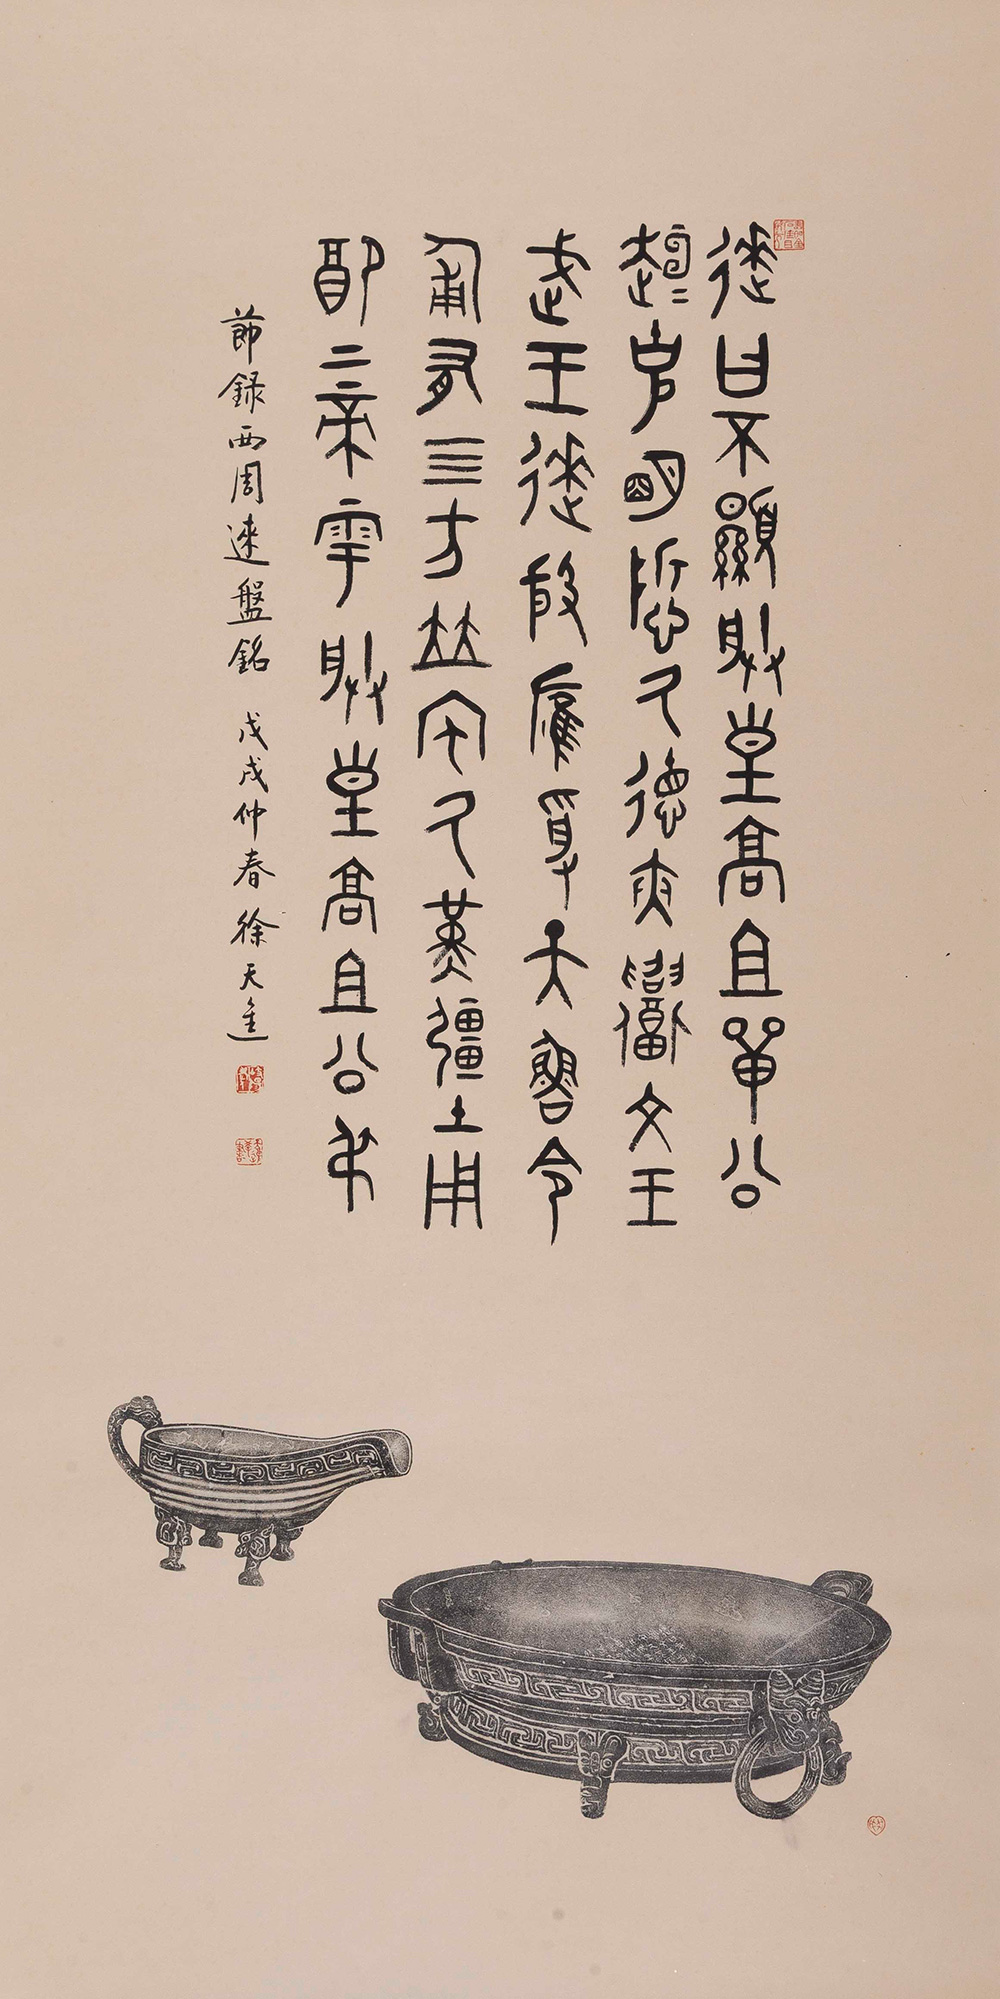 逨曰不顯朕皇高且單公
趄=克明悊氒德夾召文王
武王達殷膺受天魯令
匍有四方並宅氒堇彊土用
配上帝雩朕皇高且公弔
節錄西周逨盤銘 戊戌仲春徐天進